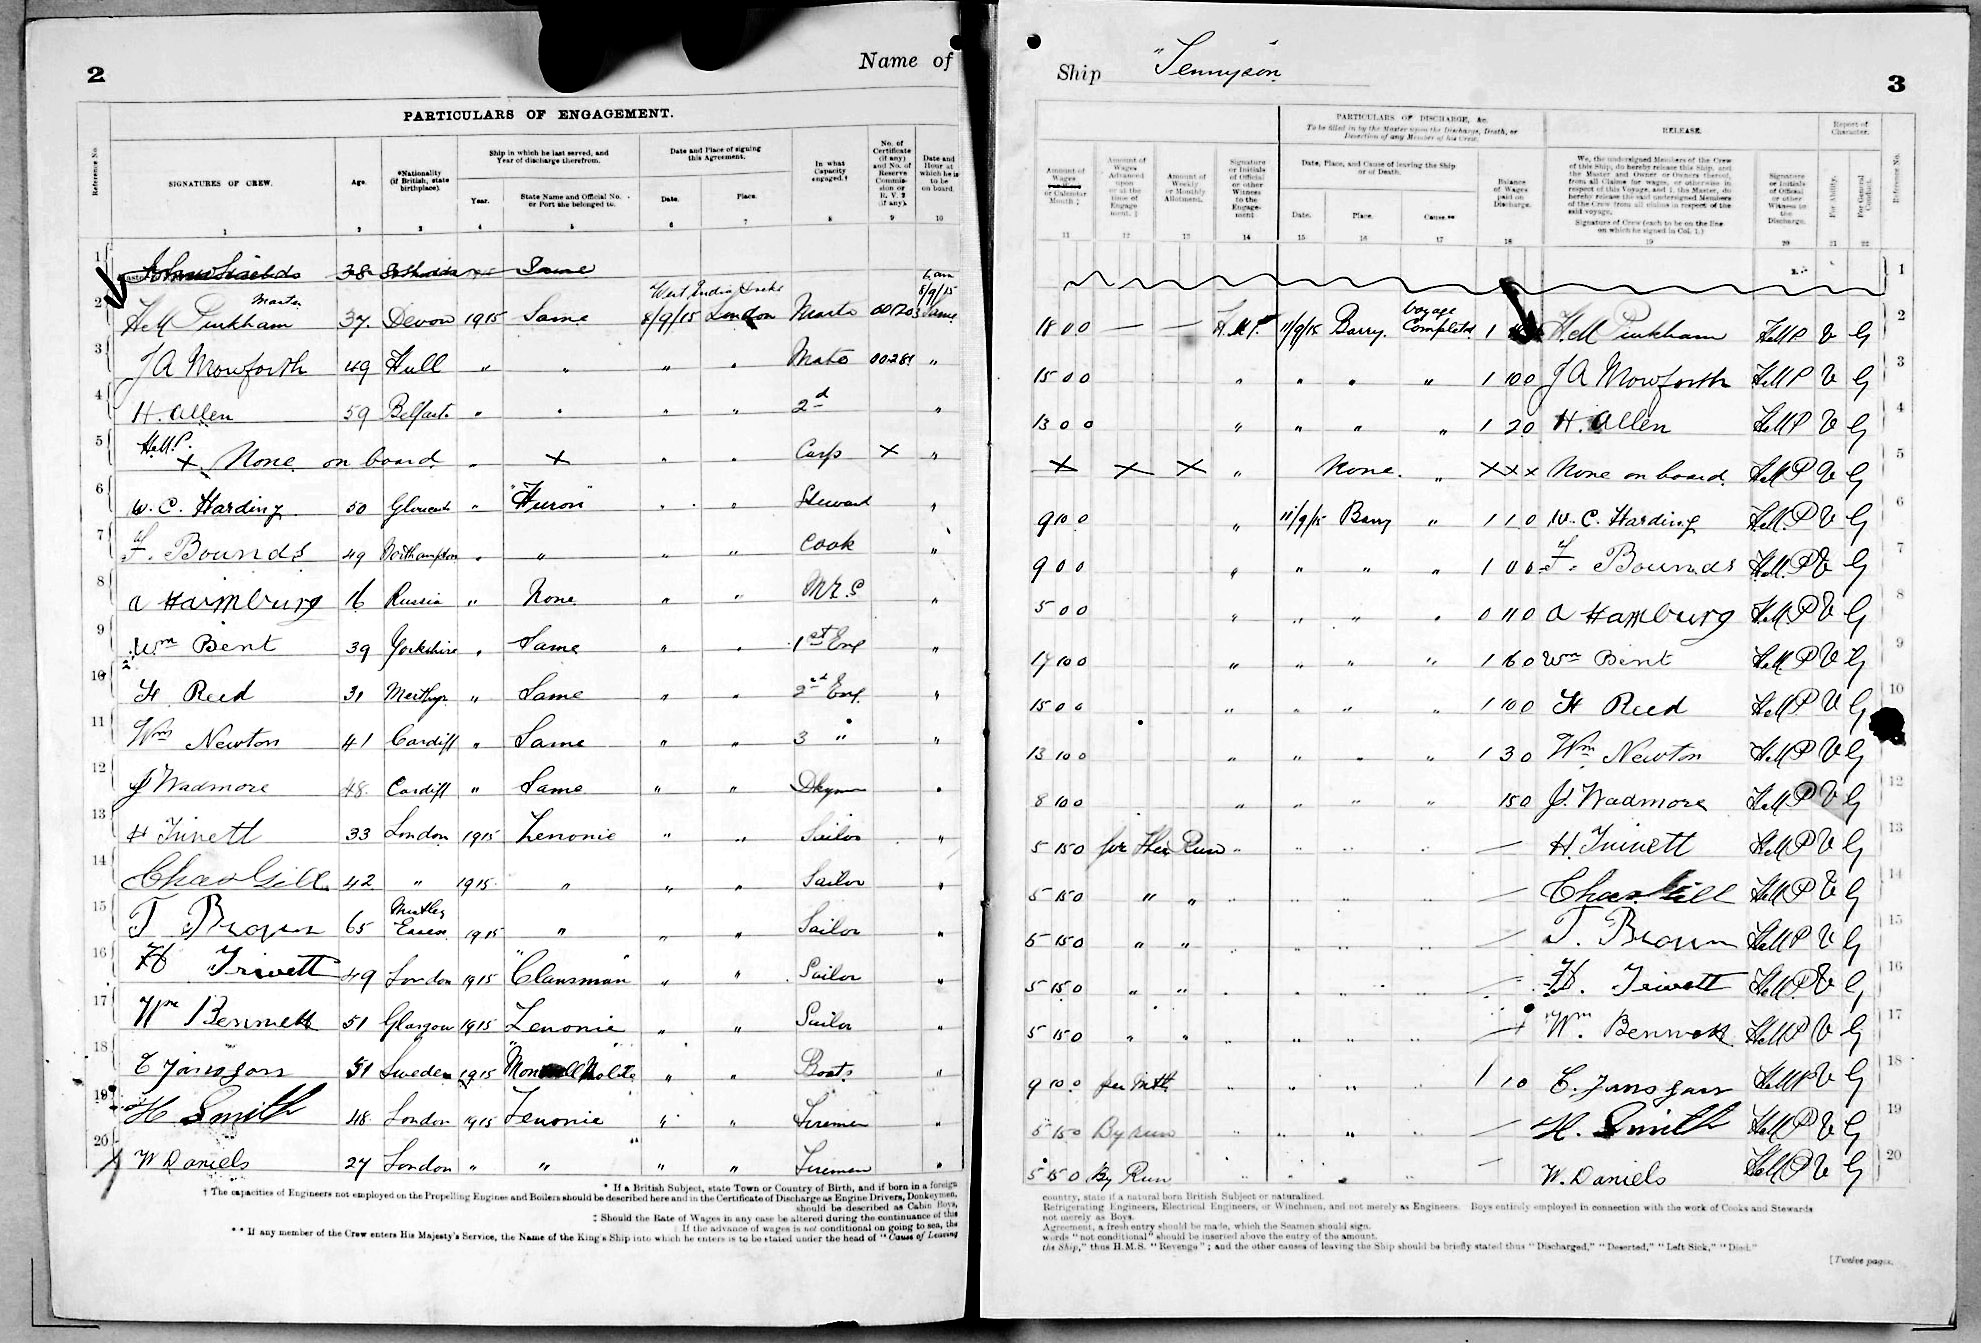 2
Name of
PARTICULARS OF ENGAGEMENT.
Reference No.
SIGNATURES OF CREW.
Age.
*Nationality (if British, state birthplace).
Ship in which he last served, and Year of discharge therefrom.
Year.
State Name and Official No. or Port she belonged to.
Date and Place of signing this Agreement.
Date.
Place.
In what Capacity engaged.†
No. of Certificate (if any) and No. of Reserve Commission or R. V. 2 (if any).
Date and Hour at which he is to be on board.
1 2 3 4 5 6 7 8 9 10
1 38 Same
West India Docks 6 am 8/9/15
2 H M Pinkham Master 37 Devon 1915 Same 8/9/15 London Master 001203 Same
3 J A Mowforth 49 Hull " " " " Mate 00281 "
4 H. Allen 59 Belfast " " " " 2nd "
5 H.M.P. X None on board " X " " Carp X "
6 W. C. Harding 50 Glouces " "Huron" " " Steward "
7 F. Bounds 49 Northampton " " " " Cook "
8 A Hamburg 16 Russia " None " " M.R.S "
9 Wm Bent 39 Yorkshire " Same " " 1st Eng "
10 H Reed 31 Merthyr " Same " " 2nd Eng "
11 Wm Newton 41 Cardiff " Same " " 3 " "
12 J Wadmore 48 Cardiff " Same " " Dkyman "
13 H Trivett 33 London 1915 Zenonie " " Sailor "
14 Chas Gill 42 " 1915 " " " Sailor "
15 T Brown 65 Mistley Essex 1915 " " " Sailor "
16 H Trivett 49 London 1915 "Clansman" " " Sailor "
17 Wm Bennett 51 Glasgow 1915 Zenonie " " Sailor "
18 C Jansson 51 Sweden 1915 " " Boats "
19 H Smith 48 London 1915 Zenonie " " Firemen "
20 W Daniels 27 London " " " " Firemen "
* If a British Subject, state Town or Country of Birth, and if born in a foreign
† The capacities of Engineers not employed on the Propelling Engines and Boilers should be described here and in the Certificate of Discharge as Engine Drivers, Donkeymen,
should be described as Cabin Boys,
‡ Should the Rate of Wages in any case be altered during the continuance of this
|| If the advance of wages is not conditional on going to sea, the
** If any member of the Crew enters His Majesty's Service, the Name of the King's Ship into which he enters is to be stated under the head of "Cause of Leaving
Ship "Tennyson"
3
PARTICULARS OF DISCHARGE, &c.
To be filled in by the Master upon the Discharge, Death, or Desertion of any Member of his Crew.
RELEASE.
Report of Character.
Amount of Wages or Calendar Month ‡
Amount of Wages Advanced upon or at the time of Engagement. ‡
Amount of Weekly or Monthly Allotment.
Signature or Initials of Official or other Witness to the Engagement
Date, Place, and Cause of leaving the Ship or of Death.
Date.
Place.
Cause.**
Balance of Wages paid on Discharge.
We, the undersigned Members of the Crew of this Ship, do hereby release this Ship, and the Master and Owner or Owners thereof, from all Claims for wages, or otherwise in respect of this Voyage, and I, the Master, do hereby release the said undersigned Members of the Crew from all claims in respect of the said voyage.
Signature of Crew (each to be on the line on which he signed in Col. 1.)
Signature or Initials of Official or other Witness to the Discharge.
For Ability.
For General Conduct.
Reference No.
11 12 13 14 15 16 17 18 19 20 21 22
1
18 0 0 — — H.M.P. 11/9/15 Barry. Voyage Completed 1 H.M Pinkham H.M.P V G 2
15 0 0 " " " " 1 10 0 J A Mowforth H.M.P V G 3
13 0 0 " " " " 1 2 0 H. Allen H.M.P V G 4
X X X " None. " X X X None on board. H.M.P V G 5
9 10 0 " 11/9/15 Barry " 1 1 0 W. C. Harding H.M.P V G 6
9 0 0 " " " " 1 0 0 F. Bounds H.M.P V G 7
5 0 0 " " " " 0 11 0 A Hamburg H.M.P V G 8
17 10 0 " " " " 1 6 0 Wm Bent H.M.P V G 9
15 0 0 " " " " 1 10 0 H Reed H.M.P V G 10
13 10 0 " " " " 1 3 0 Wm Newton H.M.P V G 11
8 10 0 " " " " 15 0 J. Wadmore H.M.P V G 12
5 15 0 for the Run " " " " — H. Trivett H.M.P V G 13
5 15 0 " " " " " " — Chas Gill H.M.P V G 14
5 15 0 " " " " " " — T. Brown H.M.P V G 15
5 15 0 " " " " " " — H. Trivett H.M.P V G 16
5 15 0 " " " " " " — Wm. Bennett H.M.P V G 17
9 10 0 per mth " " " " 1 1 0 C. Jansson H.M.P V G 18
5 15 0 By run " " " " — H. Smith H.M.P V G 19
5 15 0 By Run " " " " — W. Daniels H.M.P V G 20
country, state if a natural born British Subject or naturalized.
Refrigerating Engineers, Electrical Engineers, or Winchmen, and not merely as Engineers. Boys entirely employed in connection with the work of Cooks and Stewards
not merely as Boys.
Agreement, a fresh entry should be made, which the Seamen should sign.
words "not conditional" should be inserted above the entry of the amount.
the Ship," thus H.M.S. "Revenge"; and the other causes of leaving the Ship should be briefly stated thus "Discharged," "Deserted," "Left Sick," "Died."
[Twelve pages.